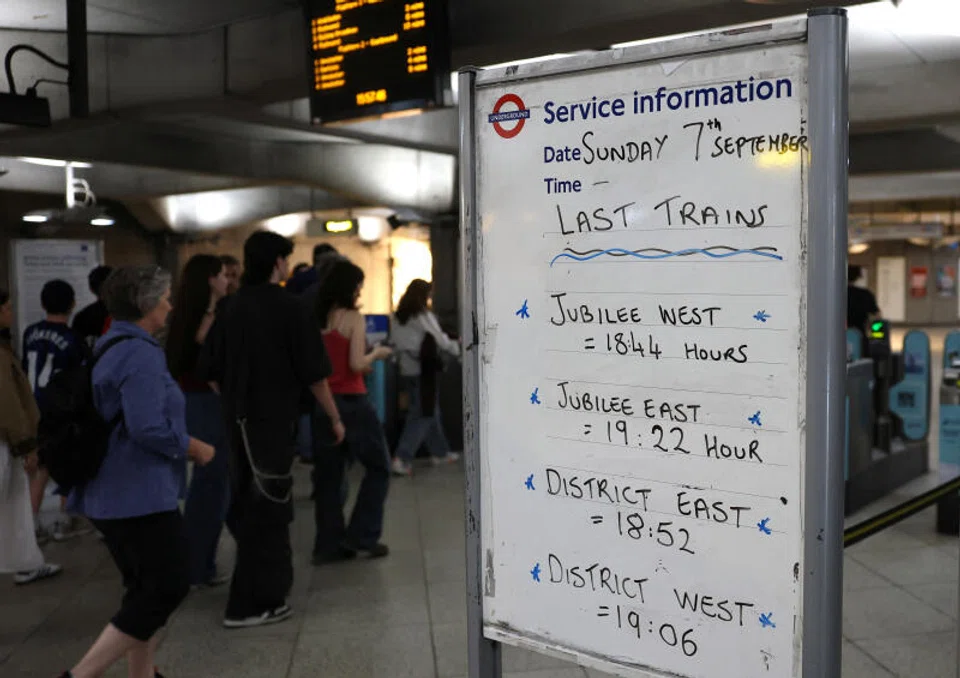 UNDERGROUND
Service information
Date SUNDAY 7th SEPTEMBER
Time —
LAST TRAINS
JUBILEE WEST
= 18:44 HOURS
JUBILEE EAST
= 19:22 HOUR
DISTRICT EAST
= 18:52
DISTRICT WEST
= 19:06
15:57:48
14